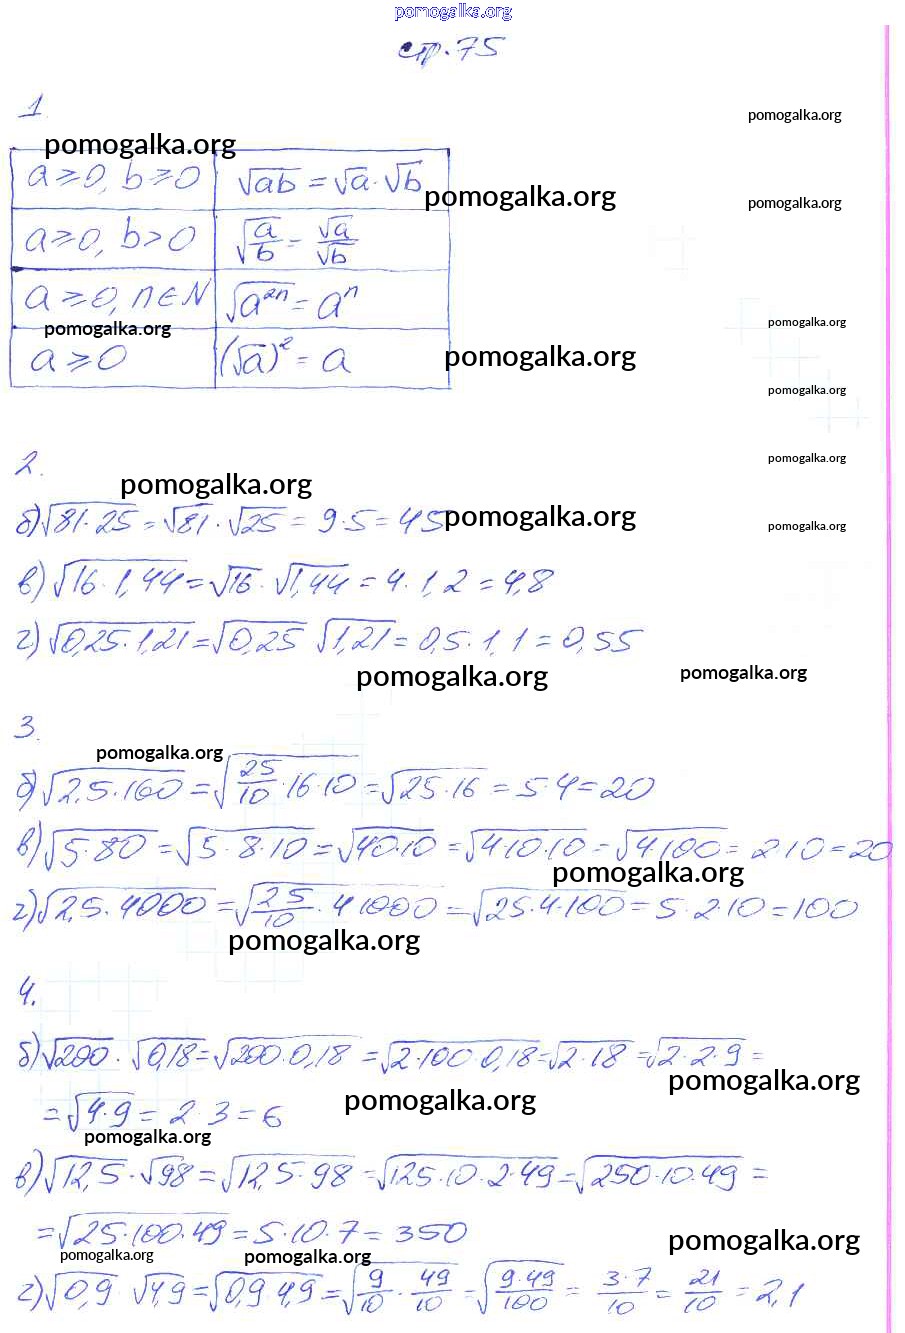 pomogalka.org
стр. 75
1.
pomogalka.org
pomogalka.org
a ≥ 0, b ≥ 0 √ab = √a · √b
pomogalka.org
pomogalka.org
a ≥ 0, b > 0 √(a/b) = √a/√b
a ≥ 0, n ∈ N √a²ⁿ = aⁿ
pomogalka.org
pomogalka.org
a ≥ 0 (√a)² = a
pomogalka.org
pomogalka.org
2.
pomogalka.org
pomogalka.org
б) √81·25 = √81 · √25 = 9·5 = 45
pomogalka.org
pomogalka.org
в) √16·1,44 = √16 · √1,44 = 4·1,2 = 4,8
г) √0,25·1,21 = √0,25 √1,21 = 0,5·1,1 = 0,55
pomogalka.org
pomogalka.org
3.
pomogalka.org
б) √2,5·160 = √(25/10·16·10) = √25·16 = 5·4 = 20
в) √5·80 = √5·8·10 = √40·10 = √4·10·10 = √4·100 = 2·10 = 20
pomogalka.org
г) √2,5·4000 = √(25/10·4 1000) = √25·4·100 = 5·2·10 = 100
pomogalka.org
4.
б) √200 · √0,18 = √200·0,18 = √2·100·0,18 = √2·18 = √2·2·9 =
pomogalka.org
pomogalka.org
= √4·9 = 2·3 = 6
pomogalka.org
в) √12,5 · √98 = √12,5·98 = √125·10·2·49 = √250·10·49 =
= √25·100·49 = 5·10·7 = 350
pomogalka.org
pomogalka.org
pomogalka.org
г) √0,9 · √4,9 = √0,9·4,9 = √(9/10·49/10) = √(9·49/100) = 3·7/10 = 21/10 = 2,1